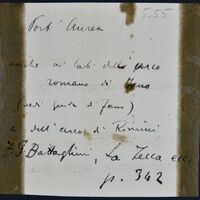 5.55
Port' Aurea
anche ai lati dell'arco
romano di Fano
(vedi guida di Fano)
e dell'arco di Rimini
F. G. Battaglini, La Zecca ecc.
p. 342